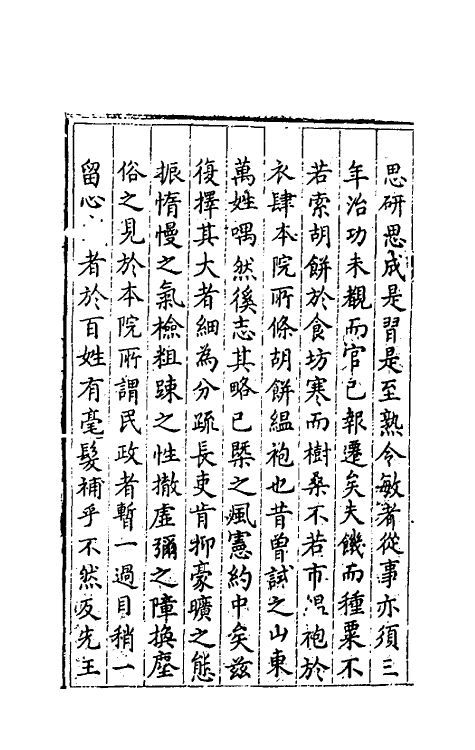 思研思成是習是至熟令敏者從事亦須三
年治功未覩而官已報遷矣夫饑而種粟不
若索胡餅於食坊寒而樹桑不若市縕袍於
衣肆本院所條胡餅縕袍也昔曾試之山東
萬姓喁然徯志其略已槩之風憲約中矣茲
復擇其大者細為分疏長吏肯抑豪曠之態
振惰慢之氣檢粗踈之性撤虛彌之障換塵
俗之見於本院所謂民政者暫一過目稍一
留心 者於百姓有毫髮補乎不然反先王